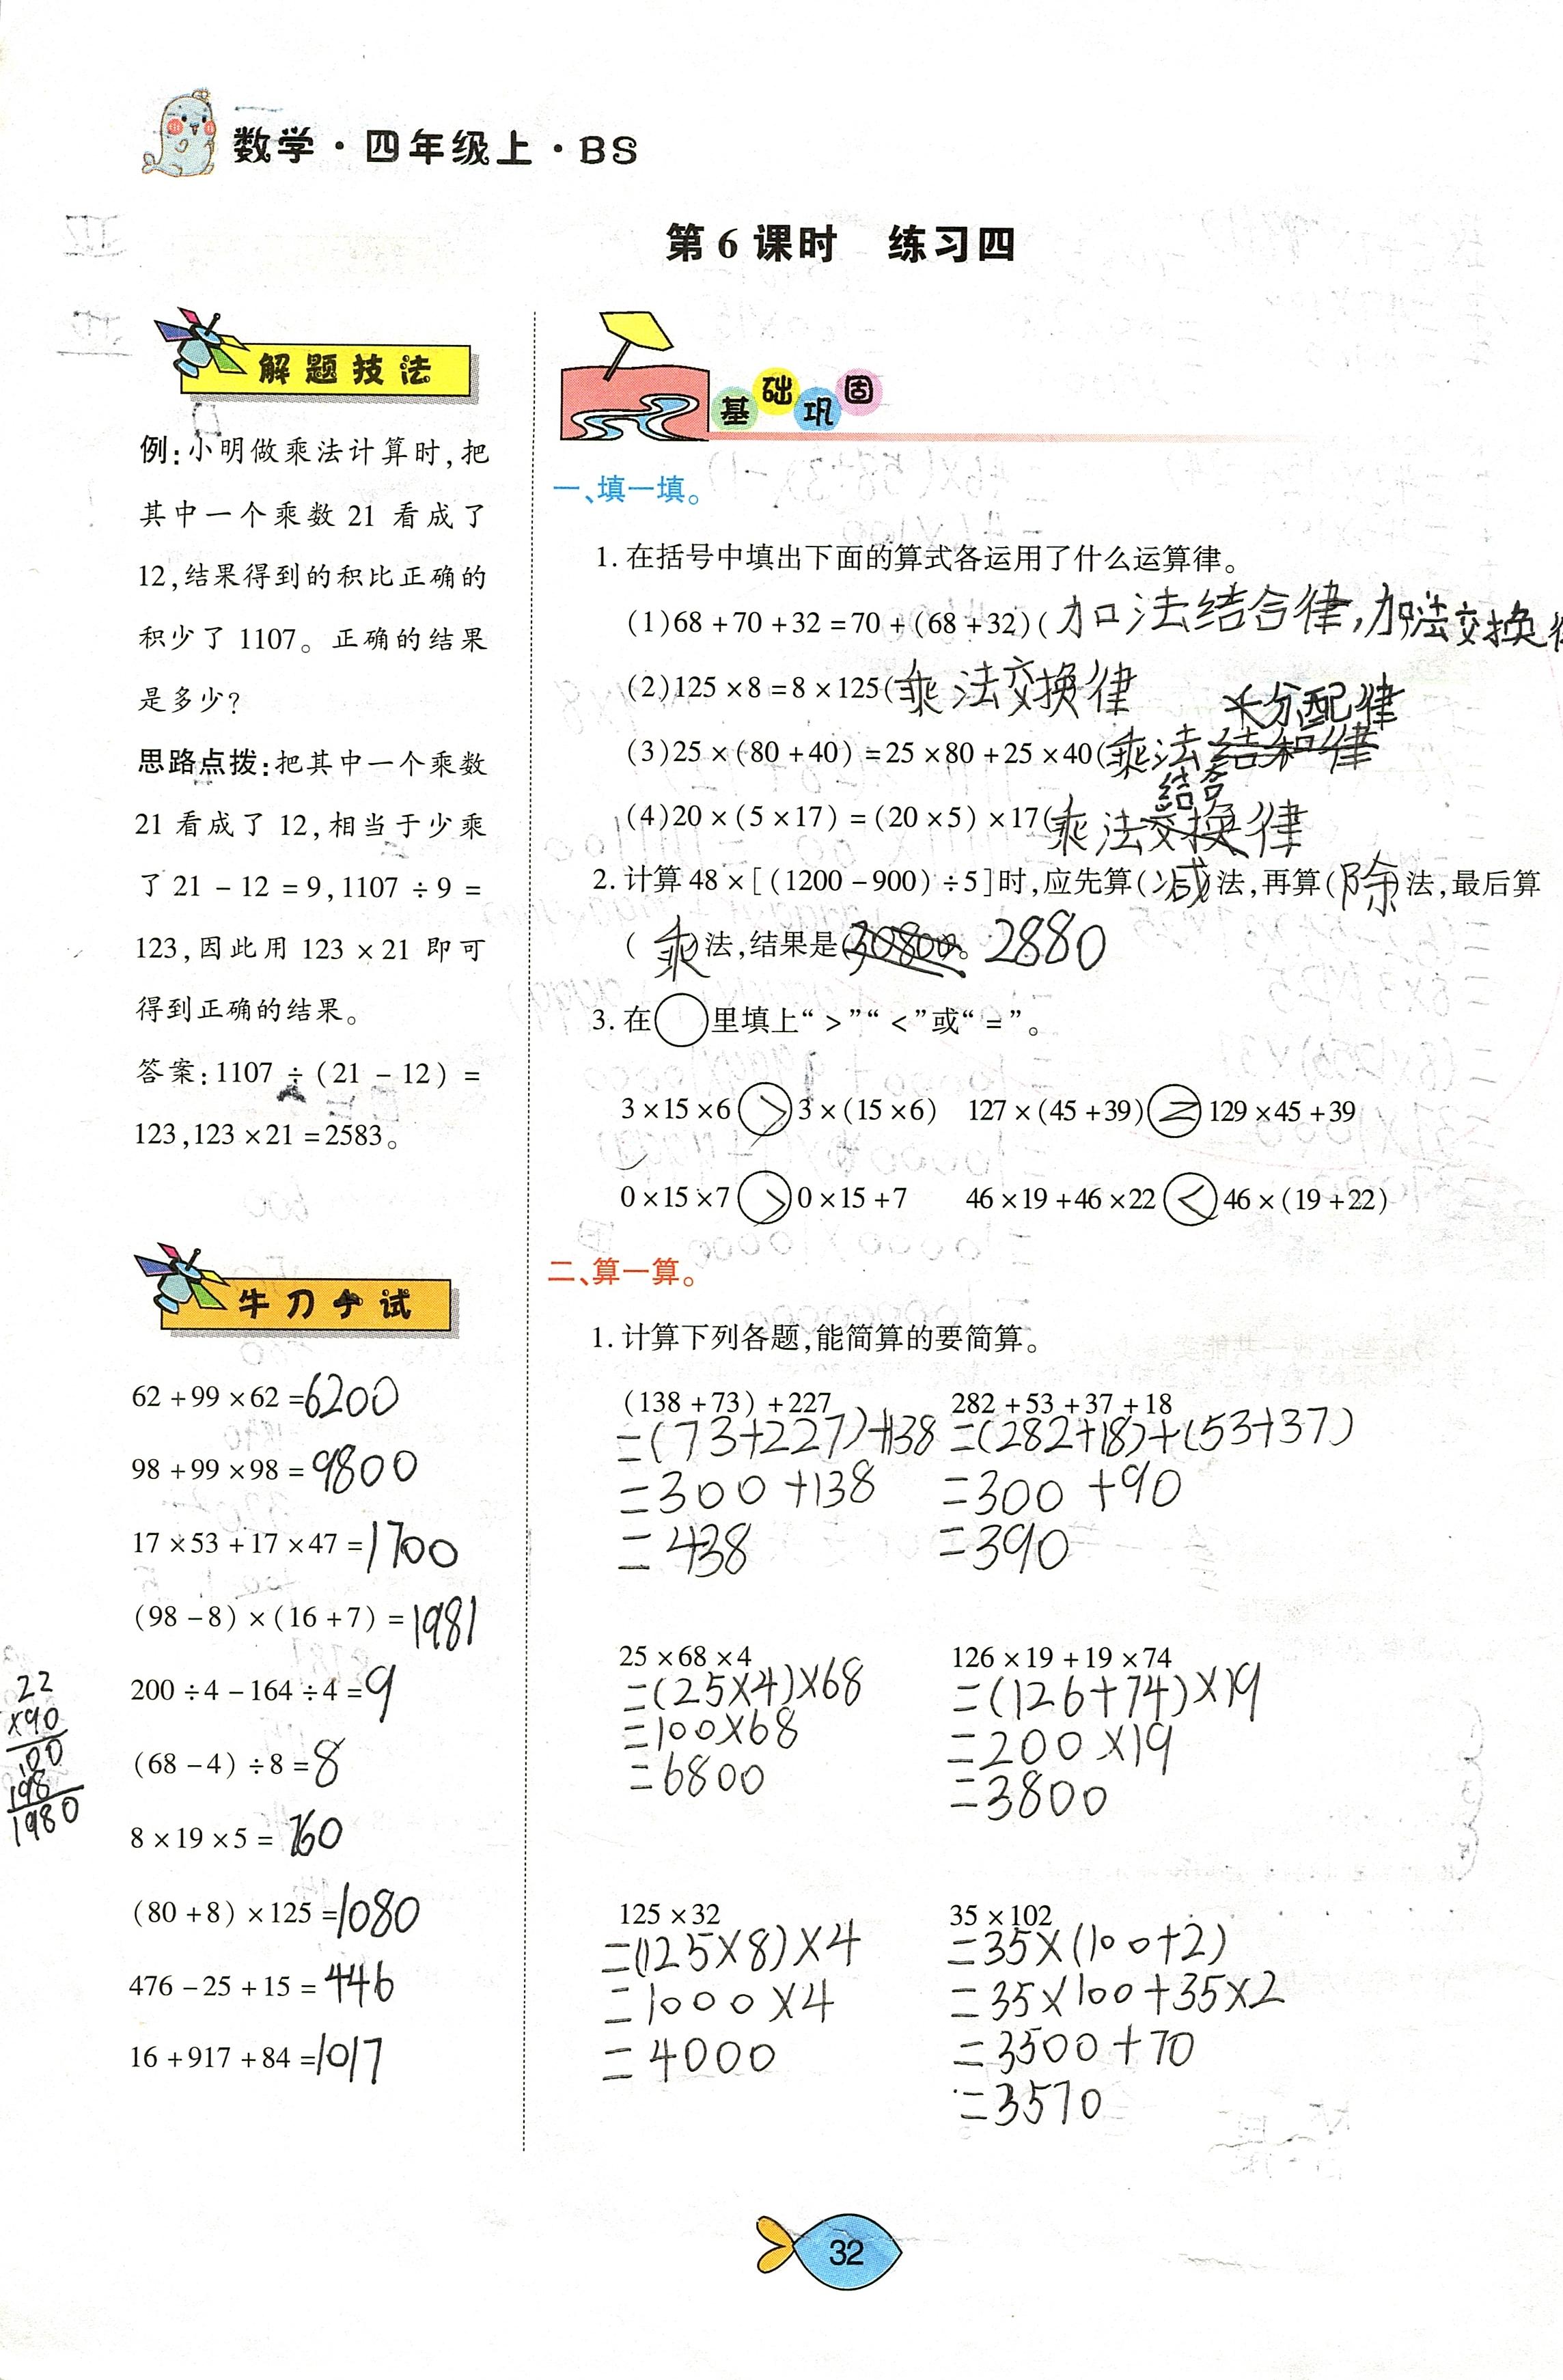 数学·四年级上·BS
第6课时 练习四
解题技法
例:小明做乘法计算时,把
其中一个乘数 21 看成了
12,结果得到的积比正确的
积少了 1107。正确的结果
是多少?
思路点拨:把其中一个乘数
21 看成了 12,相当于少乘
了 21 - 12 = 9,1107 ÷ 9 =
123,因此用 123 × 21 即可
得到正确的结果。
答案:1107 ÷ (21 - 12) =
123,123 × 21 = 2583。
牛刀小试
62 + 99 × 62 = 6200
98 + 99 × 98 = 9800
17 × 53 + 17 × 47 = 1700
(98 - 8) × (16 + 7) = 1981
200 ÷ 4 - 164 ÷ 4 = 9
(68 - 4) ÷ 8 = 8
8 × 19 × 5 = 760
(80 + 8) × 125 = 1080
476 - 25 + 15 = 446
16 + 917 + 84 = 1017
22
×90
100
198
1980
基础巩固
一、填一填。
1. 在括号中填出下面的算式各运用了什么运算律。
(1)68 + 70 + 32 = 70 + (68 + 32)(加法结合律,加法交换律
(2)125 × 8 = 8 × 125(乘法交换律
分配律
(3)25 × (80 + 40) = 25 × 80 + 25 × 40(乘法结和律
结合
(4)20 × (5 × 17) = (20 × 5) × 17(乘法交换律
2. 计算 48 × [(1200 - 900) ÷ 5]时,应先算(减)法,再算(除)法,最后算
(乘)法,结果是(30800。 2880
3. 在○里填上“ > ”“ < ”或“ = ”。
3 × 15 × 6 > 3 × (15 × 6) 127 × (45 + 39) = 129 × 45 + 39
0 × 15 × 7 > 0 × 15 + 7 46 × 19 + 46 × 22 < 46 × (19 + 22)
二、算一算。
1. 计算下列各题,能简算的要简算。
(138 + 73) + 227
=(73+227)+138
=300+138
=438
282 + 53 + 37 + 18
=(282+18)+(53+37)
=300+90
=390
25 × 68 × 4
=(25×4)×68
=100×68
=6800
126 × 19 + 19 × 74
=(126+74)×19
=200×19
=3800
125 × 32
=(125×8)×4
=1000×4
=4000
35 × 102
=35×(100+2)
=35×100+35×2
=3500+70
=3570
32